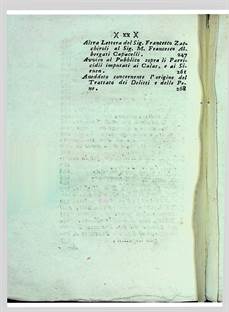 X XX X
Altra Lettera del Sig. Francesco Zac-
chiroli al Sig. M. Francesco Al-
bergati Capacelli, 247
Avviso al Pubblico sopra li Parri-
cidii imputati ai Calas, e ai Si-
rven. 261
Anedoto concernente l'origine del
Trattato dei Delitti e delle Pe-
ne. 268